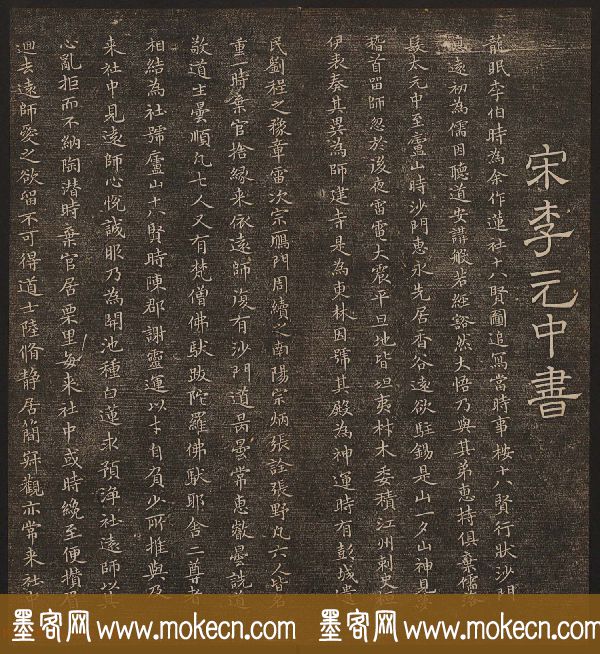 宋李元中書
龍眠李伯時為余作蓮社十八賢圖追寫當時事按十八賢行狀沙門
遠初為儒因聽道安講般若經豁然大悟乃與其弟惠持俱棄儒
髮太元中至廬山時沙門惠永先居香谷遠欲駐錫是山一夕山神見
稽首留師忽於後夜雷雷大震平旦地皆坦夷材木委積江州刺史
伊表奏其異為師建寺是為東林因號其殿為神運時有彭城
民劉程之豫章雷次宗鴈門周續之南陽宗炳張詮張野凡六人皆名
重一時棄官捨緣來依遠師復有沙門道昺曇常惠叡曇詵道
敬道生曇順凡七人又有梵僧佛馱跋陀羅佛馱耶舍二尊者
相結為社號廬山十八賢時陳郡謝靈運以才自負少所推與及
來社中見遠師心悅誠服乃為開池種白蓮求預淨社遠師以其
心亂拒而不納陶潛時棄官居栗里每來社中或時纔至便攢眉
迴去遠師愛之欲留不可得道士陸脩静居簡寂觀亦常來社
墨客网 www.mokecn.com 墨客网 www.mokecn.com